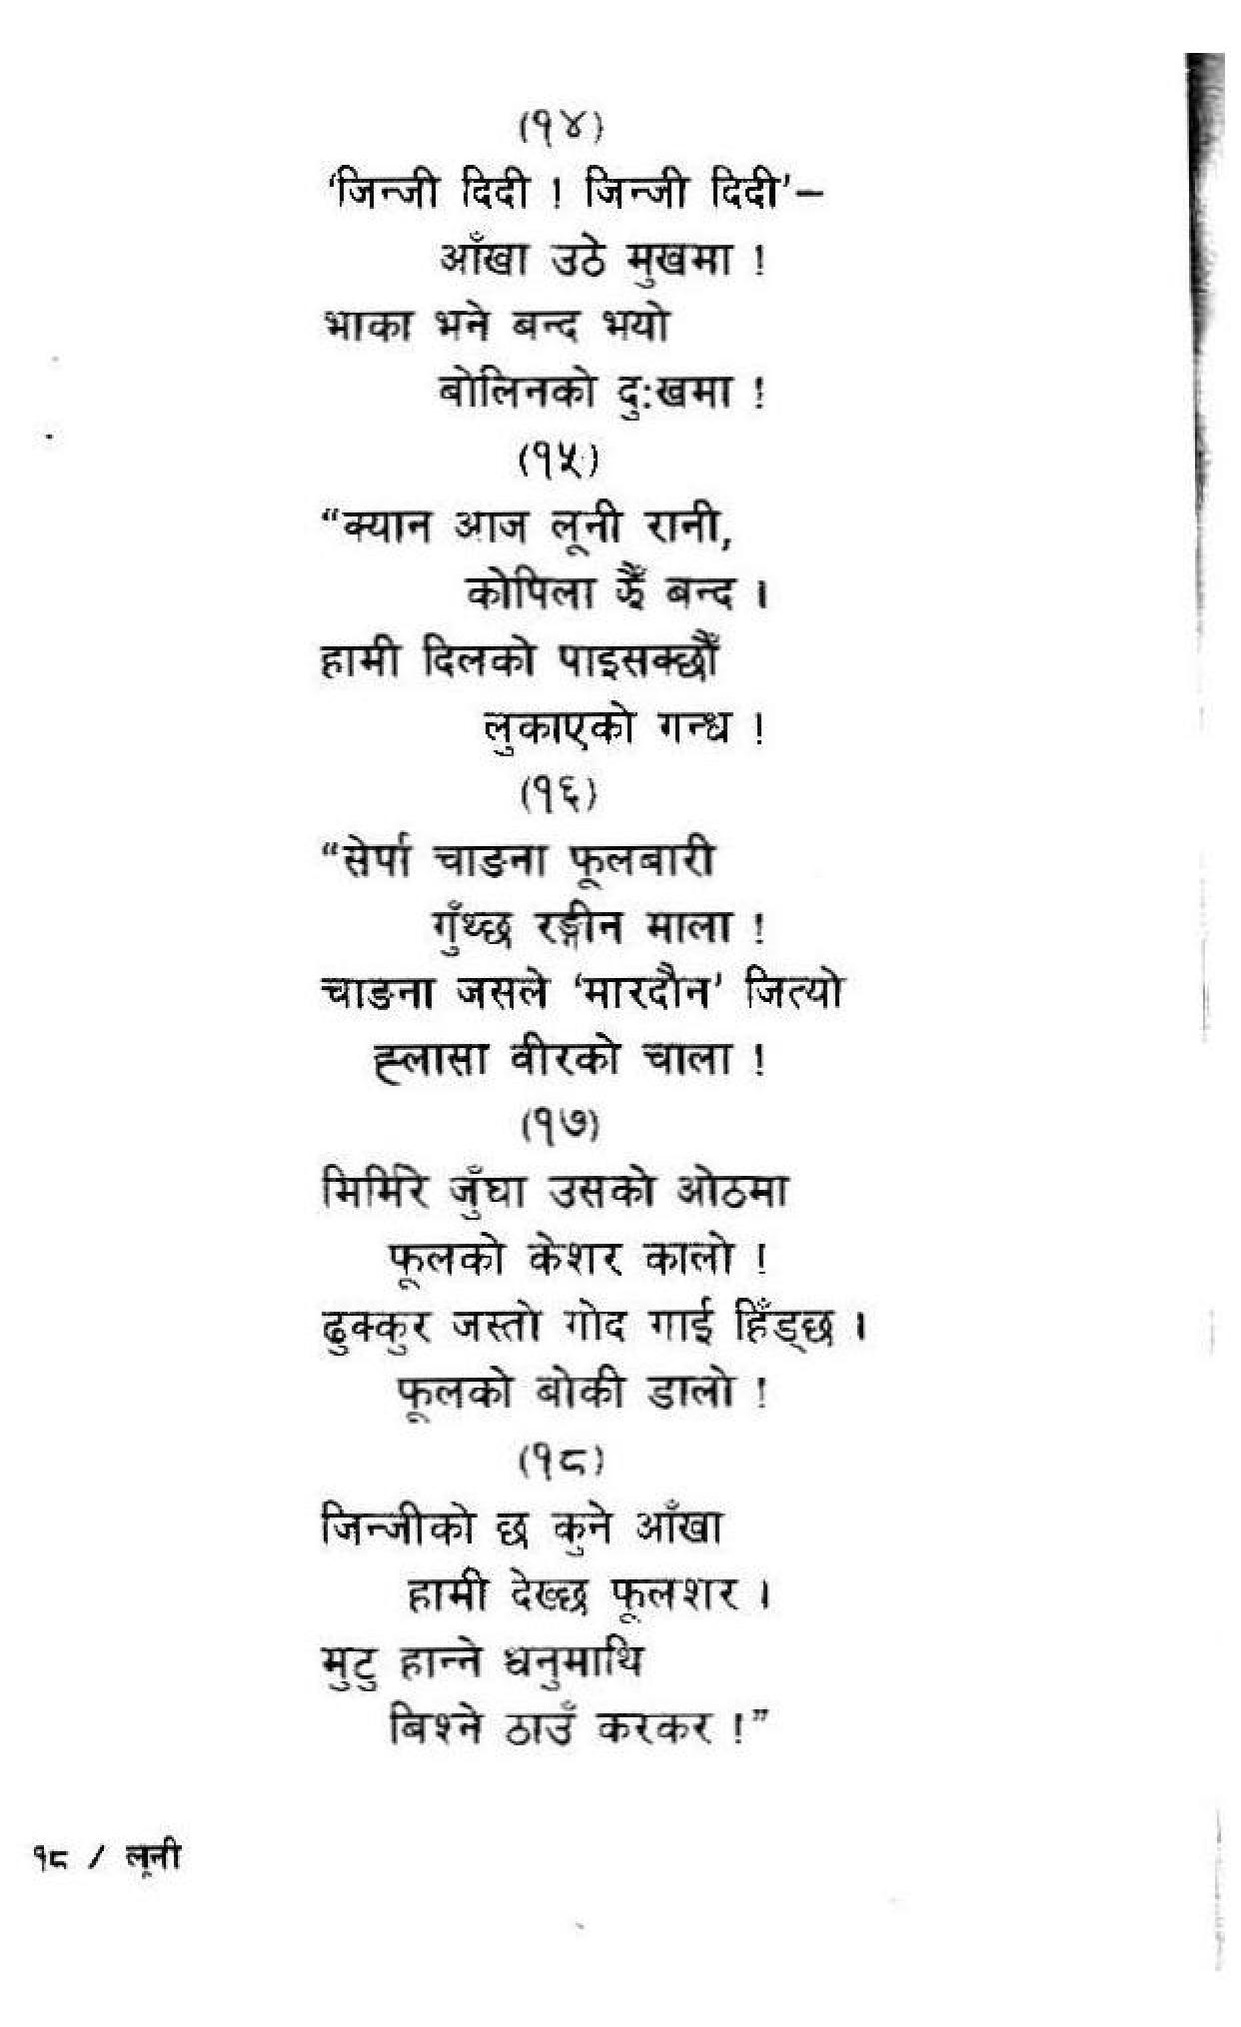 (१४)
‘जिन्जी दिदी ! जिन्जी दिदी’–
आँखा उठे मुखमा !
भाका भने बन्द भयो
बोलिनको दुःखमा !
(१५)
“क्यान आज लूनी रानी,
कोपिला झैँ बन्द ।
हामी दिलको पाइसक्छौँ
लुकाएको गन्ध !
(१६)
“सेर्पा चाङना फूलबारी
गुँथ्छ रङ्गीन माला !
चाङना जसले ‘मारदौन’ जित्यो
ह्लासा वीरको चाला !
(१७)
मिर्मिरे जुँघा उसको ओठमा
फूलको केशर कालो !
ढुक्कुर जस्तो गोद गाई हिँड्छ ।
फूलको बोकी डालो !
(१८)
जिन्जीको छ कुने आँखा
हामी देख्छ फूलशर ।
मुटु हान्ने धनुमाथि
बिश्ने ठाउँ करकर !”
१८ / लूनी